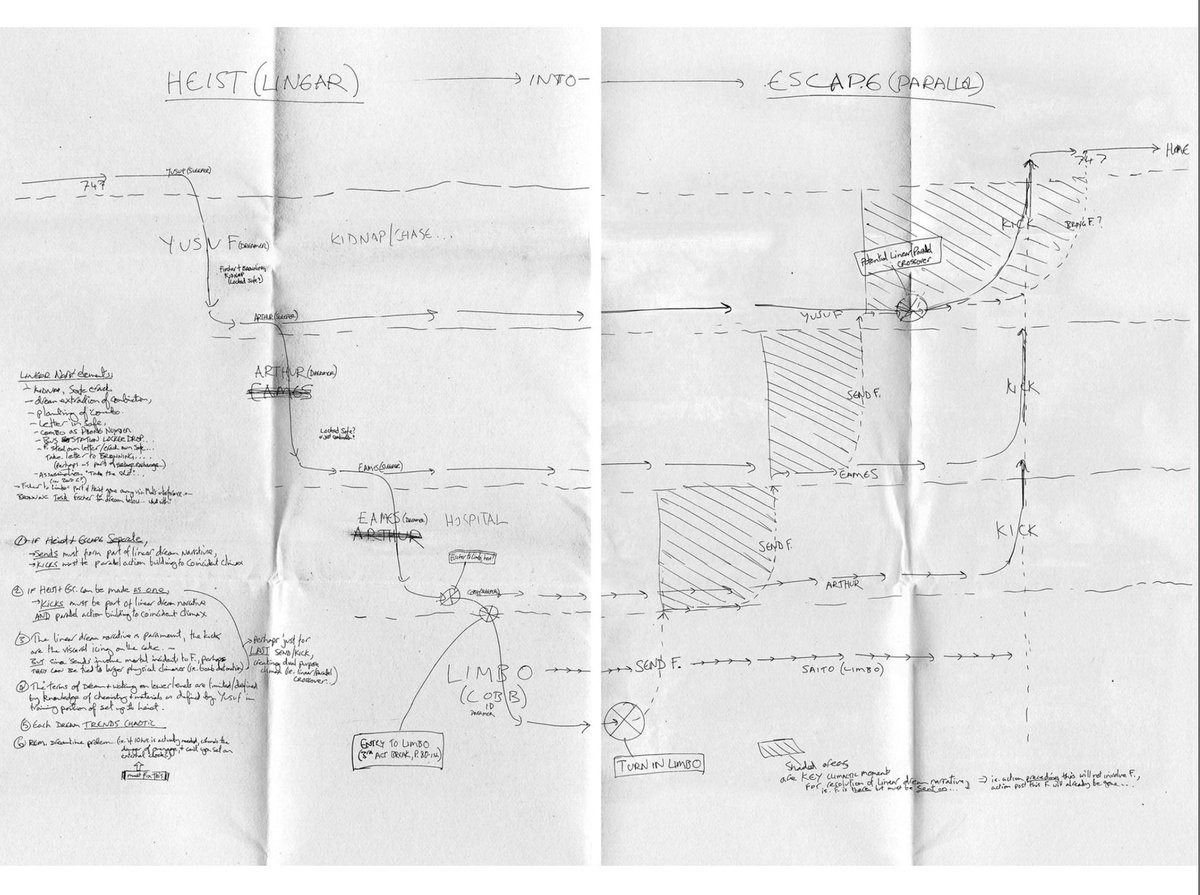 HEIST (LINEAR)
INTO
ESCAPE (PARALLEL)
747
YUSUF (SLEEPER)
747
HOME
YUSUF (DREAMER)
KIDNAP/CHASE...
KICK
BRING F.?
Fischer + Browning
Kidnap
(Locked Safe?)
Potential Linear/Parallel
CROSSOVER
ARTHUR (SLEEPER)
YUSUF
ARTHUR (DREAMER)
EAMES
KICK
SEND F.
LINEAR Narr elements,
- KIDNAP, Safe crack
- dream extraction of combination,
- planting of combo.
- Letter in safe,
- COMBO as PHONE NUMBER
- BUS STATION LOCKER DROP...
steal own letter/crack own safe...
Take letter to BROWNING...
(perhaps as part of
- Assassination "Take the shot"
Locked Safe?
EAMES (SLEEPER)
EAMES
EAMES (DREAMER)
ARTHUR
HOSPITAL
KICK
SEND F.
① IF Heist & Escape Separate,
→ Sends must form part of linear dream narrative,
→ KICKS must be parallel action building to coincident climax
② IF HEIST + Esc. can be made as one,
→ Kicks must be part of linear dream narrative
AND parallel action building to coincident climax
③ The linear dream narrative is paramount, the kicks
are the visceral icing on the cake.
But since sends involve mortal incident to F., perhaps
THEY can be tied to larger physical climaxes (i.e. bomb detonation)
→ Perhaps just for
LAST SEND/KICK,
creating dual purpose
climax (i.e. linear/parallel
CROSSOVER..)
④ The terms of Dream + waking on lower levels are limited/defined
by knowledge of chemistry + materials as defined by Yusuf in
training portion of set up to heist.
⑤ Each Dream TRENDS CHAOTIC
⑥ REM. Dreamtime problem
must fix THIS
ARTHUR
LIMBO
(COBB)
DREAMER
SEND F.
SAITO (LIMBO)
ENTRY TO LIMBO
TURN IN LIMBO
Shaded areas
are KEY climactic moment
for resolution of linear dream narrative,
ie. F. is there but must be Sent on...
⇒ i.e. action preceding this will not involve F.,
action post this F. will already be gone...